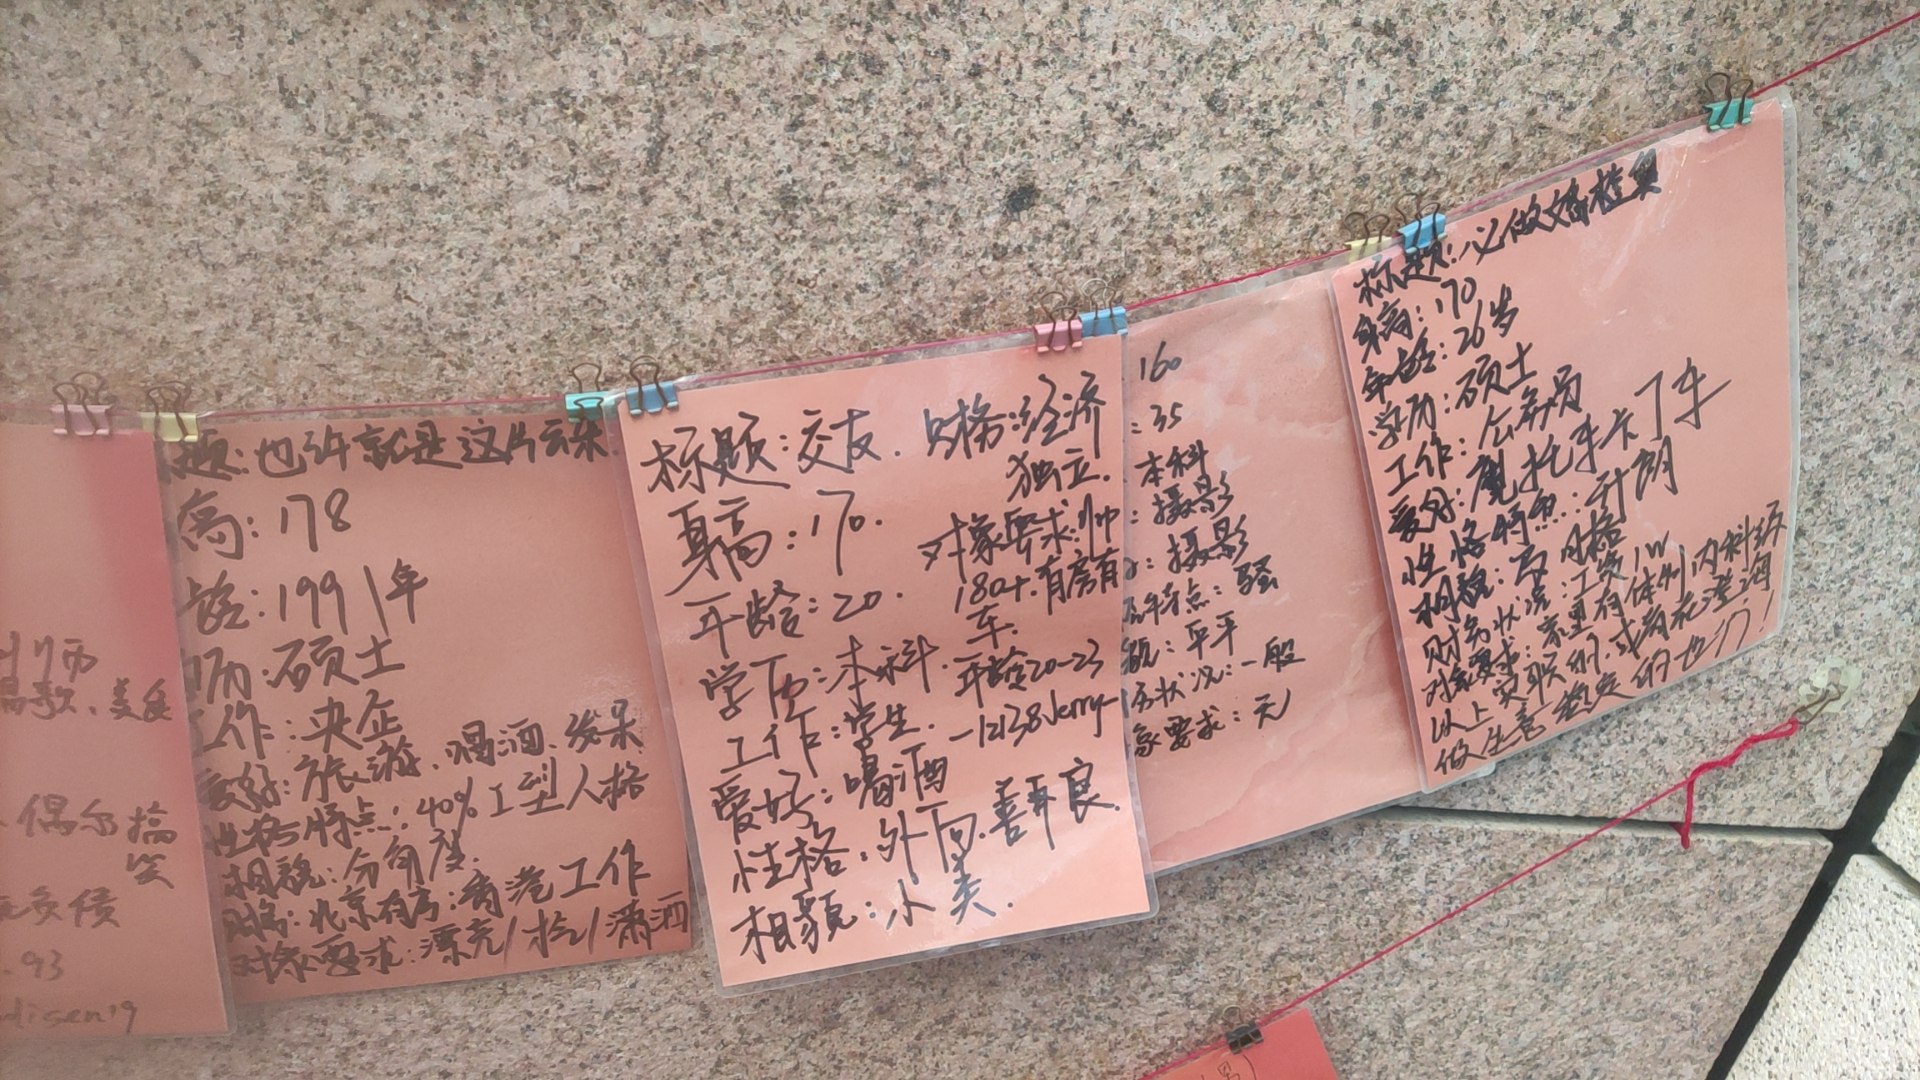 唱歌、美食
偶尔搞
笑
无负债
.93
题:也许就是这片云朵
高:178
龄:1991年
历:硕士
工作:央企
爱好:旅游、喝酒、发呆
性格特点:40%I型人格
相貌:分角度
财务:北京有房:香港工作
对象要求:漂亮/ /潇洒
标题:交友.
身高:170.
年龄:20.
学历:本科.
工作:学生.
爱好:喝酒
性格:外向.善良.
相貌:小美.
财务:经济
独立.
对象要求:帅
180+.有房有
车.
年龄20-23
-12138Jerry-
160
:35
本科
:摄影
:摄影
特点:骚
貌:平平
务状况:一般
象要求:无
标题:必做婚检员
身高:170
年龄:26岁
学历:硕士
工作:公务员
爱好:摩托车卡丁车
性格特点:开朗
相貌:
财务状况:工资1W
对象要求:家里有体制内科级
以上实职的,或者在澄海
做生意稳定的也行!